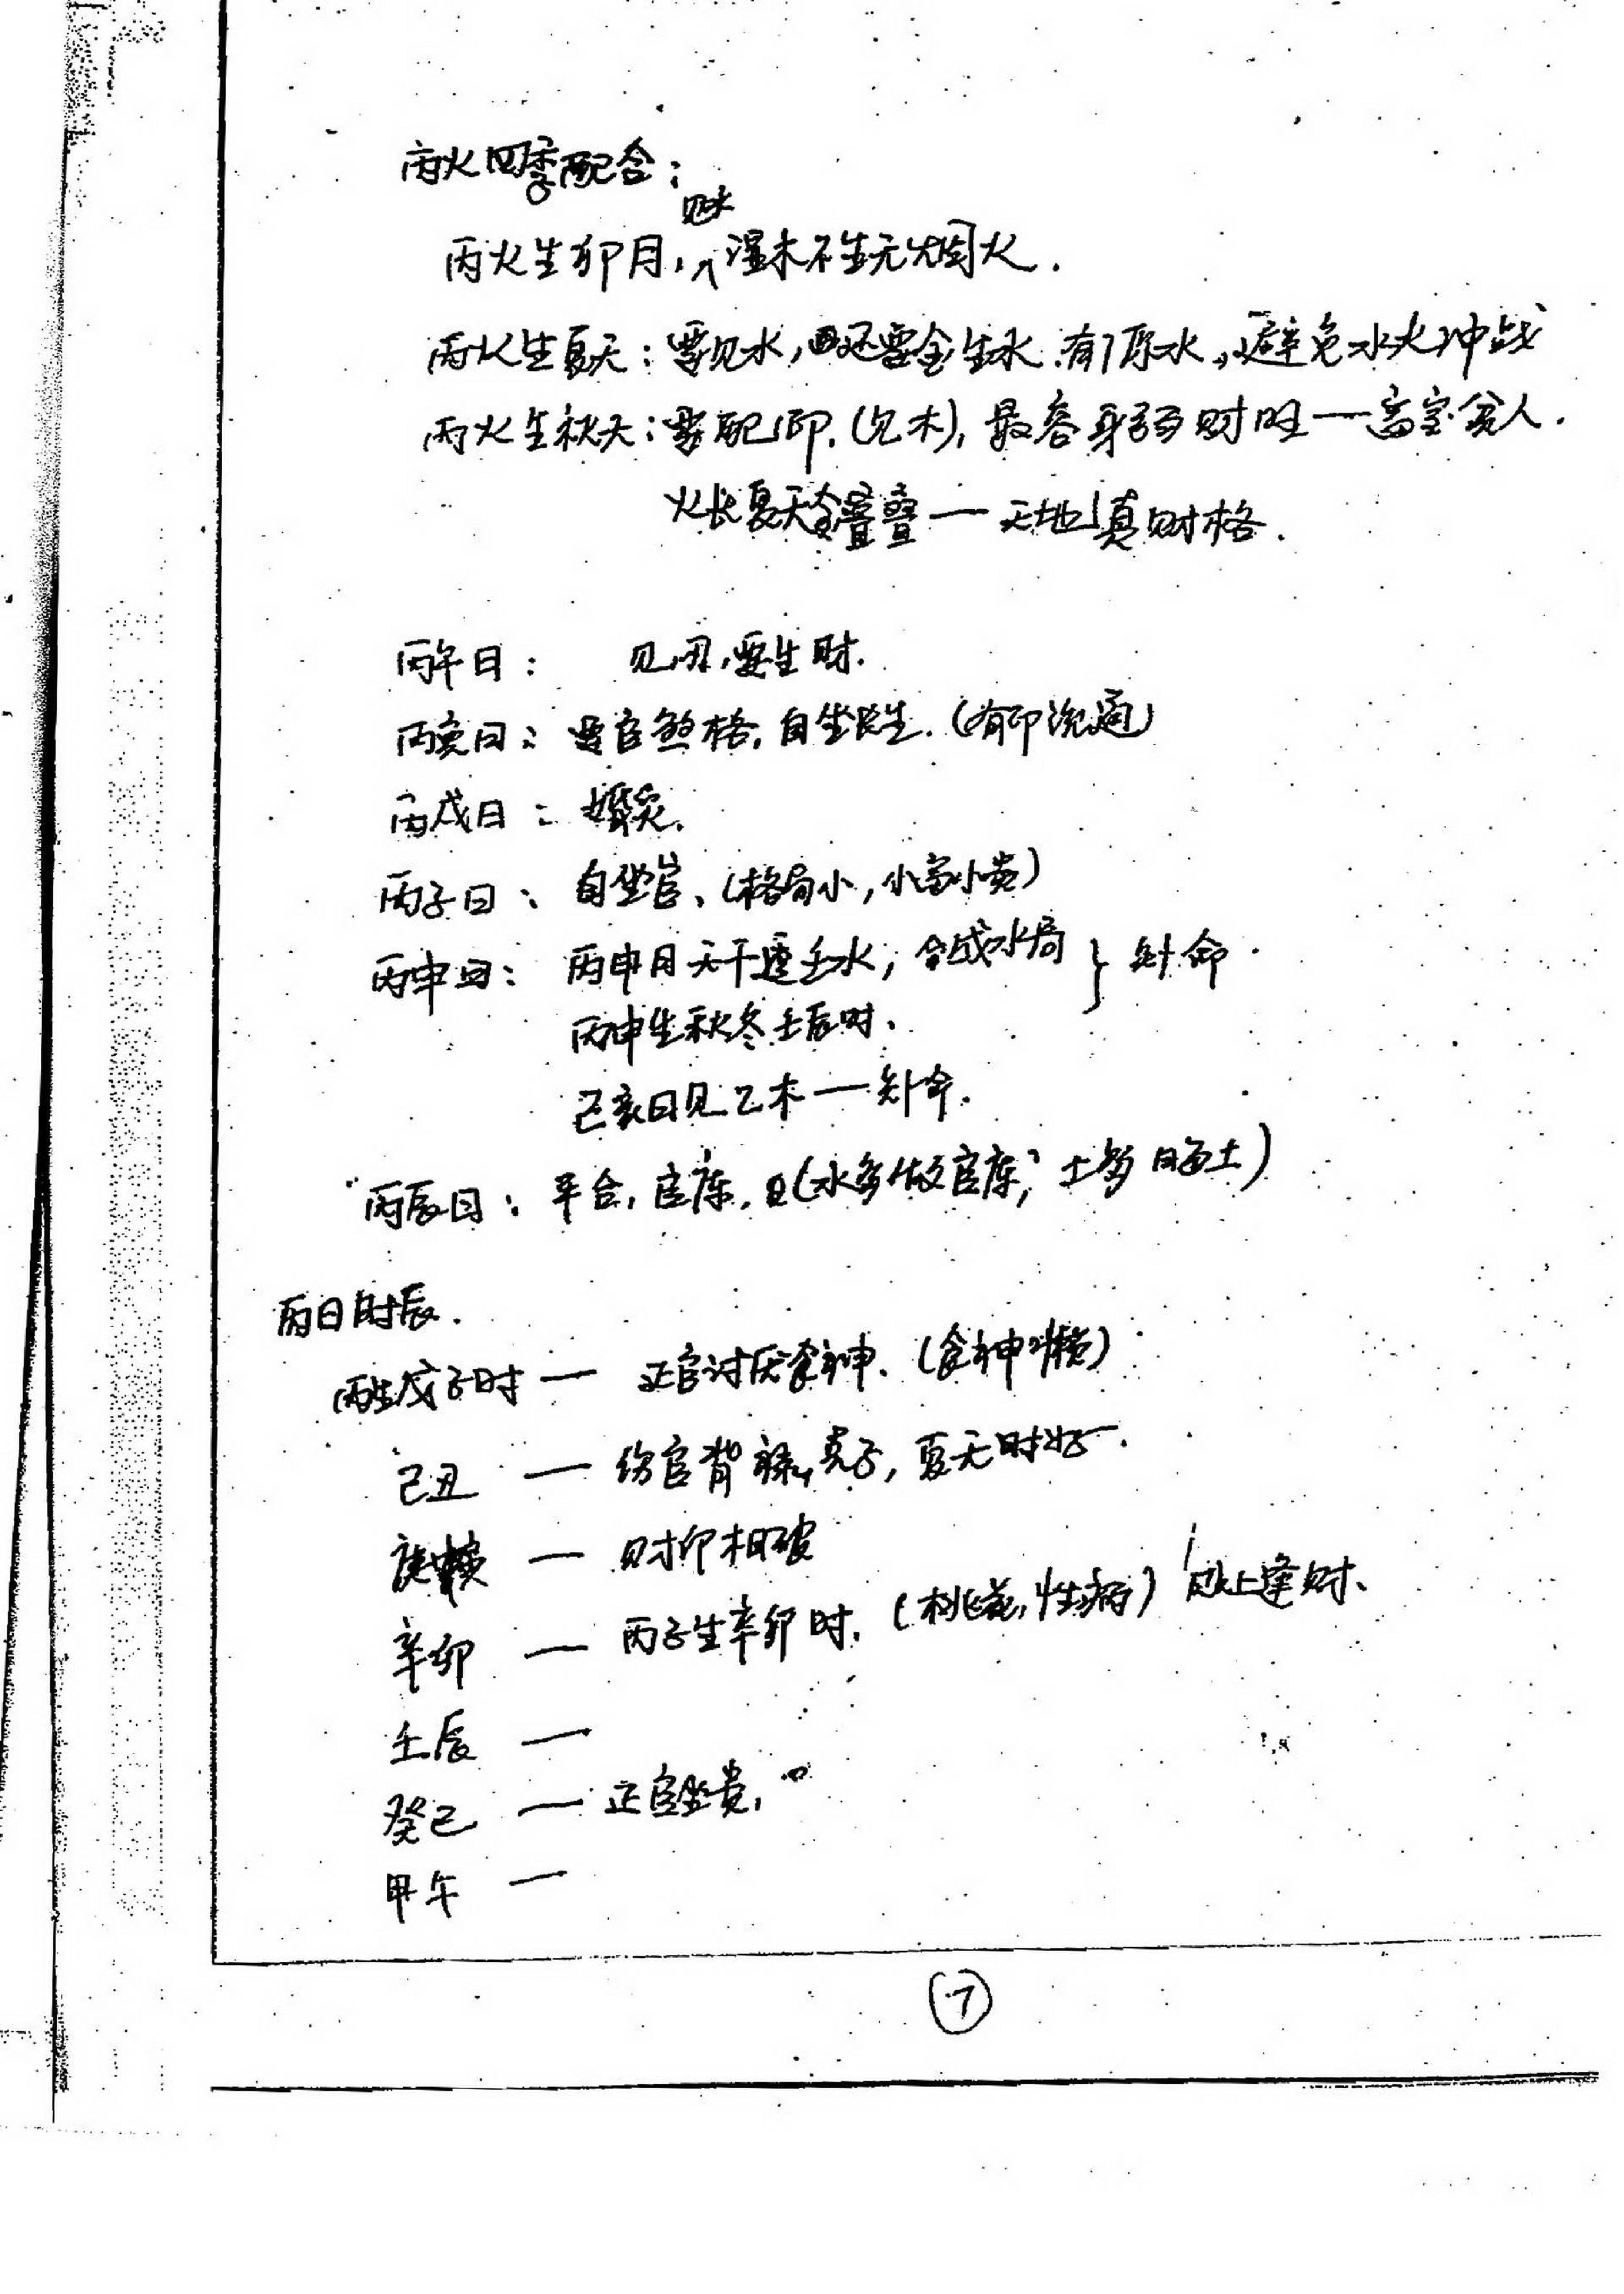 丙火四季配合:
见水
丙火生卯月,湿木不生无烟火.
丙火生夏天:要见水,还要金生水.有源水,避免水火冲战
丙火生秋天:要配印.(见木),最容身弱财旺一富室贫人.
火长夏天金叠叠一天地真财格.
丙午日: 见丑,要生财.
丙寅日:要官煞格,自坐长生.(有印流通)
丙戌日:婚灾.
丙子日、自坐官、(格局小,小富小贵)
丙申日:丙申月天干透壬水,合成水局 } 短命.
丙申生秋冬壬辰时、
己亥日见乙木一短命.
丙辰日:平台,官库.(水多做官库,土多晦土)
丙日时辰.
丙生戊子时一 正官讨厌食神、(食神懒)
己丑 一 伤官背禄,克子,夏天时好.
庚寅 一 财印相破
辛卯 一 丙子生辛卯时.(桃花,性病)败上逢财、
壬辰 一
癸巳 一 正官坐贵,
甲午 一
7